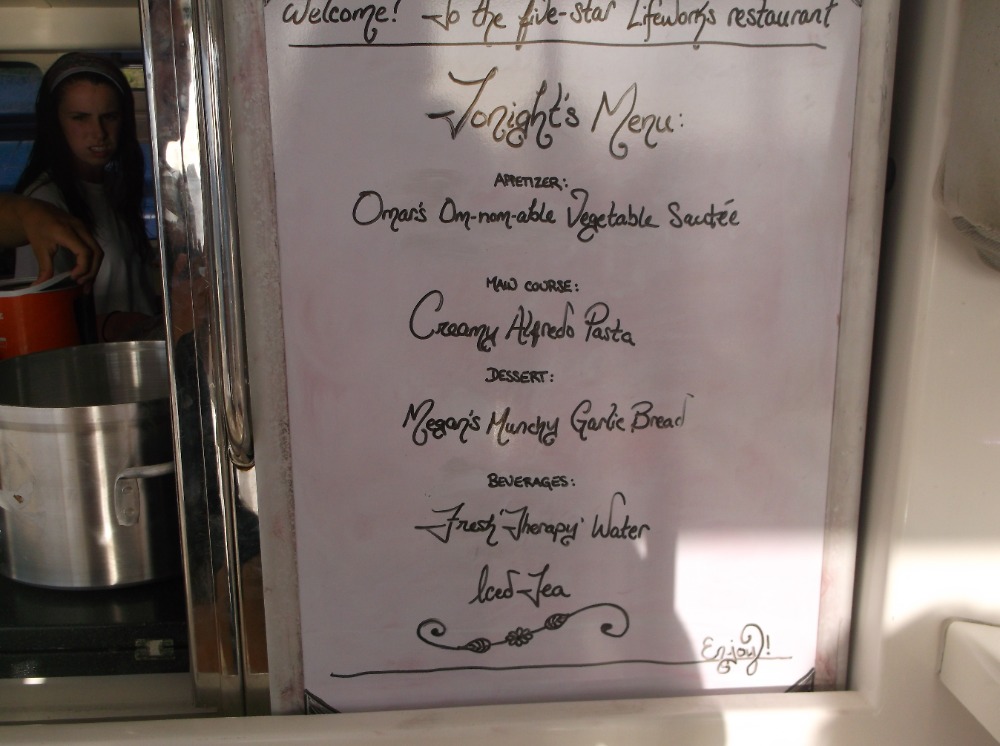 Welcome! To the five-star Lifeworks restaurant
Tonight's Menu:
APPETIZER:
Omar's Om-nom-able Vegetable Sautée
MAIN COURSE:
Creamy Alfredo Pasta
DESSERT:
Megan's Munchy Garlic Bread
BEVERAGES:
Fresh 'Therapy' Water
Iced-Tea
Enjoy!